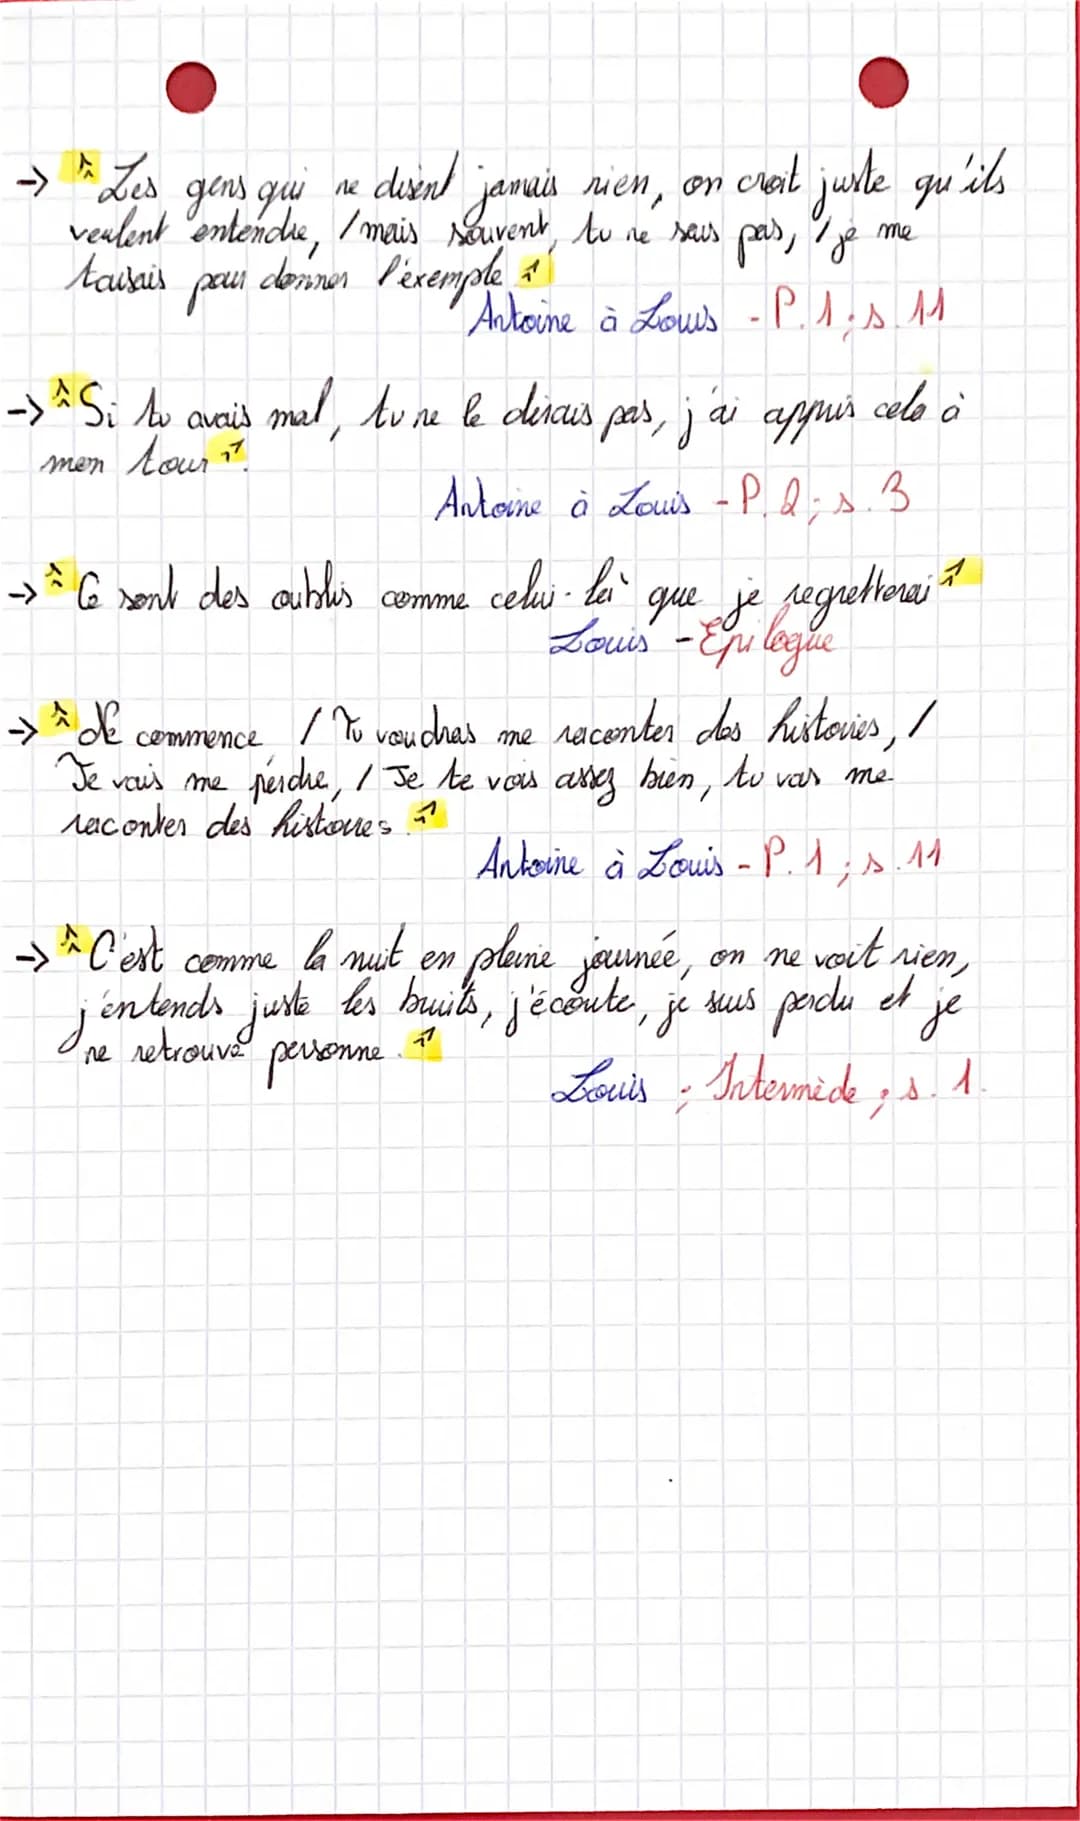 → « Les gens qui ne disent jamais rien, on croit juste qu'ils
veulent entendre, / mais souvent, tu ne sais pas, / je me
taisais pour donner l'exemple »
Antoine à Louis - P. 1 ; s. 11
→ « Si tu avais mal, tu ne le dirais pas, j'ai appris cela à
mon tour ».
Antoine à Louis - P. 2 ; s. 3
→ « Ce sont des oublis comme celui-là que je regretterai »
Louis - Epilogue
→ « Ne commence / Tu voudras me raconter des histoires, /
Je vais me perdre, / Je te vois assez bien, tu vas me
raconter des histoires. »
Antoine à Louis - P. 1 ; s. 11
→ « C'est comme la nuit en pleine journée, on ne voit rien,
j'entends juste les bruits, j'écoute, je suis perdu et je
ne retrouve personne. »
Louis ; Intermède ; s. 1.